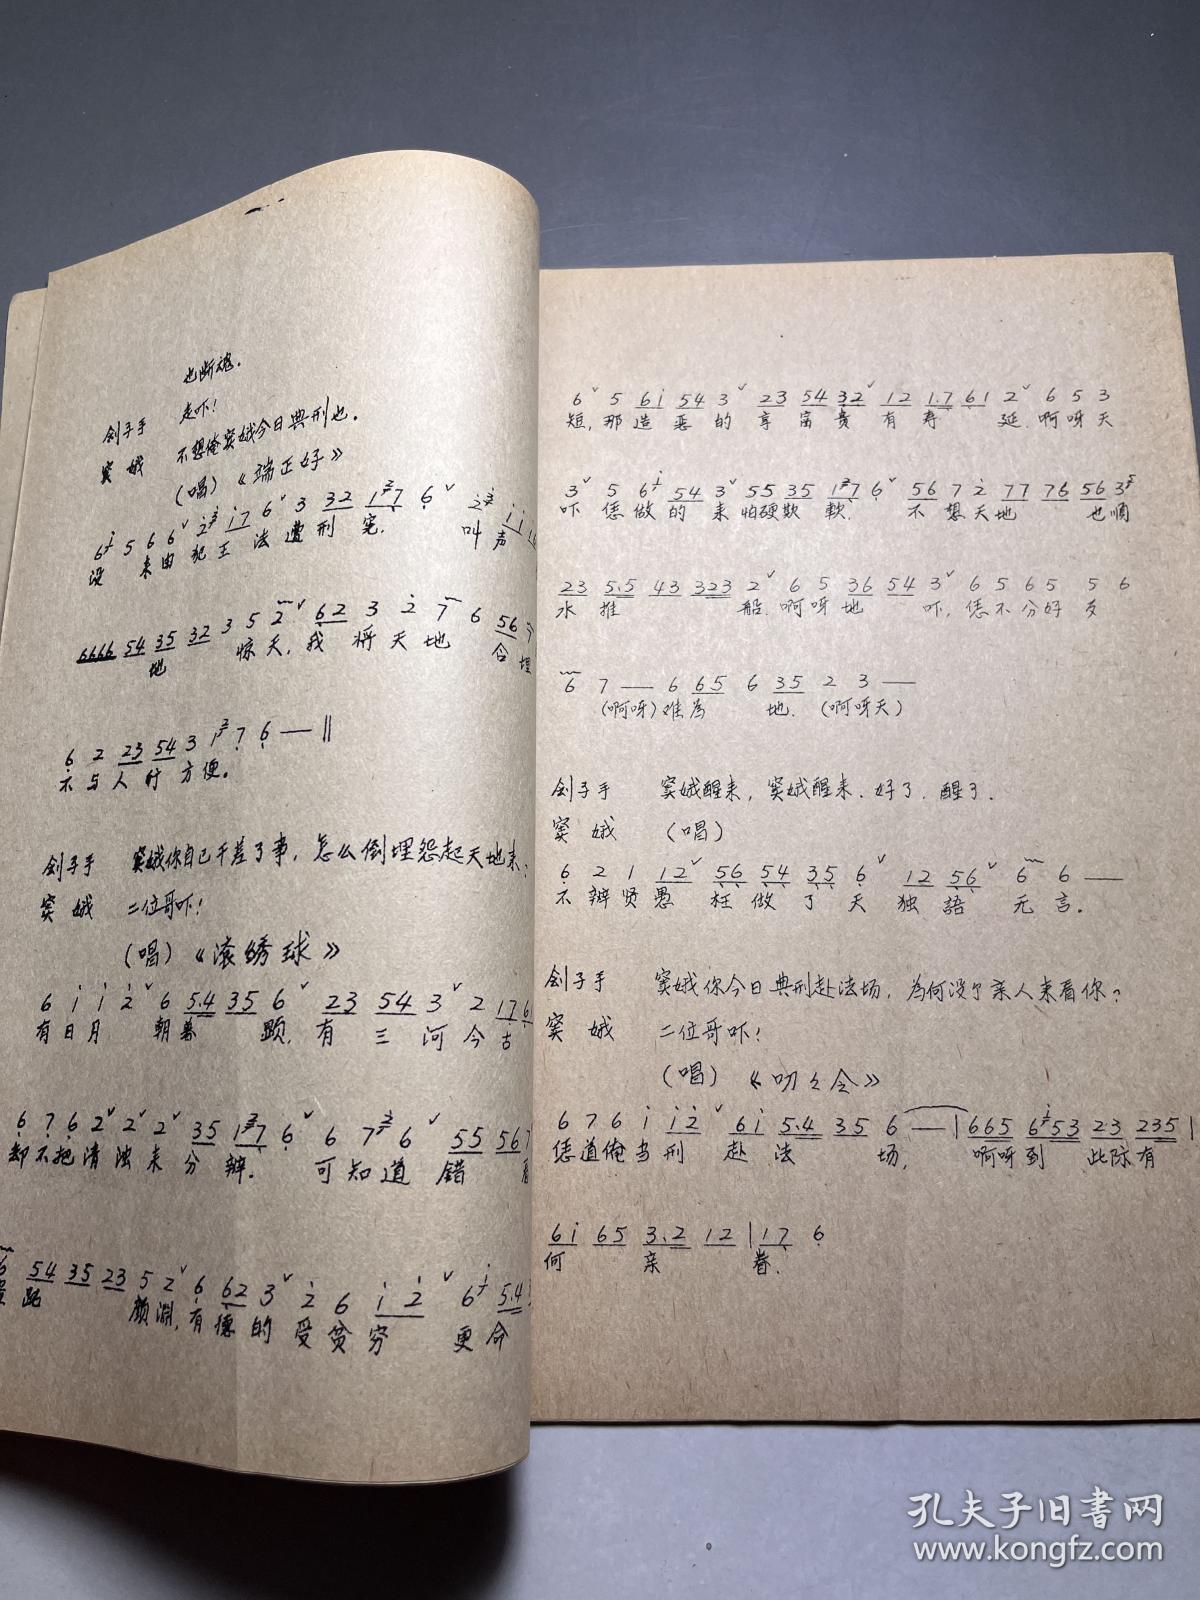 也断魂.
刽子手 走吓!
窦 娥 不想俺窦娥今日典刑也.
(唱)《端正好》
没 来由 犯王 法 遭 刑 宪. 叫 声
6666 54 35 32 3 5 2 62 3 2 7 6 56
地 惊天, 我 将 天 地 合 埋
6 2 23 54 3 1 7 6 — ‖
不 与 人 行 方 便.
刽子手 窦娥你自己干差了事, 怎么倒埋怨起天地来?
窦 娥 二位哥吓!
(唱)《滚绣球》
6 i i 2 6 5.4 35 6 23 54 3 2 176
有日月 朝暮 顯, 有 三 河 今 古
6 7 6 2 2 2 35 17 6 6 7 6 55 567
却不把清浊来分 辨. 可知道 错 看
6 54 35 23 5 2 6 62 3 2 6 i 2 6 5.4
跖 颜渊, 有德的 受贫穷 更命
6 5 6i 54 3 23 54 32 12 1.7 61 2 6 5 3
短, 那造恶的享富贵有寿 延. 啊呀天
3 5 6 54 3 55 35 17 6 56 7 2 77 76 56 3
吓 恁做的来怕硬欺軟. 不想天地 也順
23 5.5 43 323 2 6 5 36 54 3 6 5 6 5 5 6
水 推 船. 啊呀地 吓, 恁不分好歹
6 7 — 6 65 6 35 2 3 —
(啊呀)难為 地. (啊呀天)
刽子手 窦娥醒来, 窦娥醒来. 好了. 醒了.
窦 娥 (唱)
6 2 1 12 56 54 35 6 12 56 6 6 —
不辨贤愚 枉做了天 独語 无言.
刽子手 窦娥你今日典刑赴法场, 为何没个亲人来看你?
窦 娥 二位哥吓!
(唱)《叨々令》
6 7 6 i i2 6i 5.4 35 6 — | 665 653 23 235 |
恁道俺当刑 赴法 场, 啊呀到 此际有
6i 65 3.2 12 | 17 6
何 亲 眷.
孔夫子旧书网
www.kongfz.com